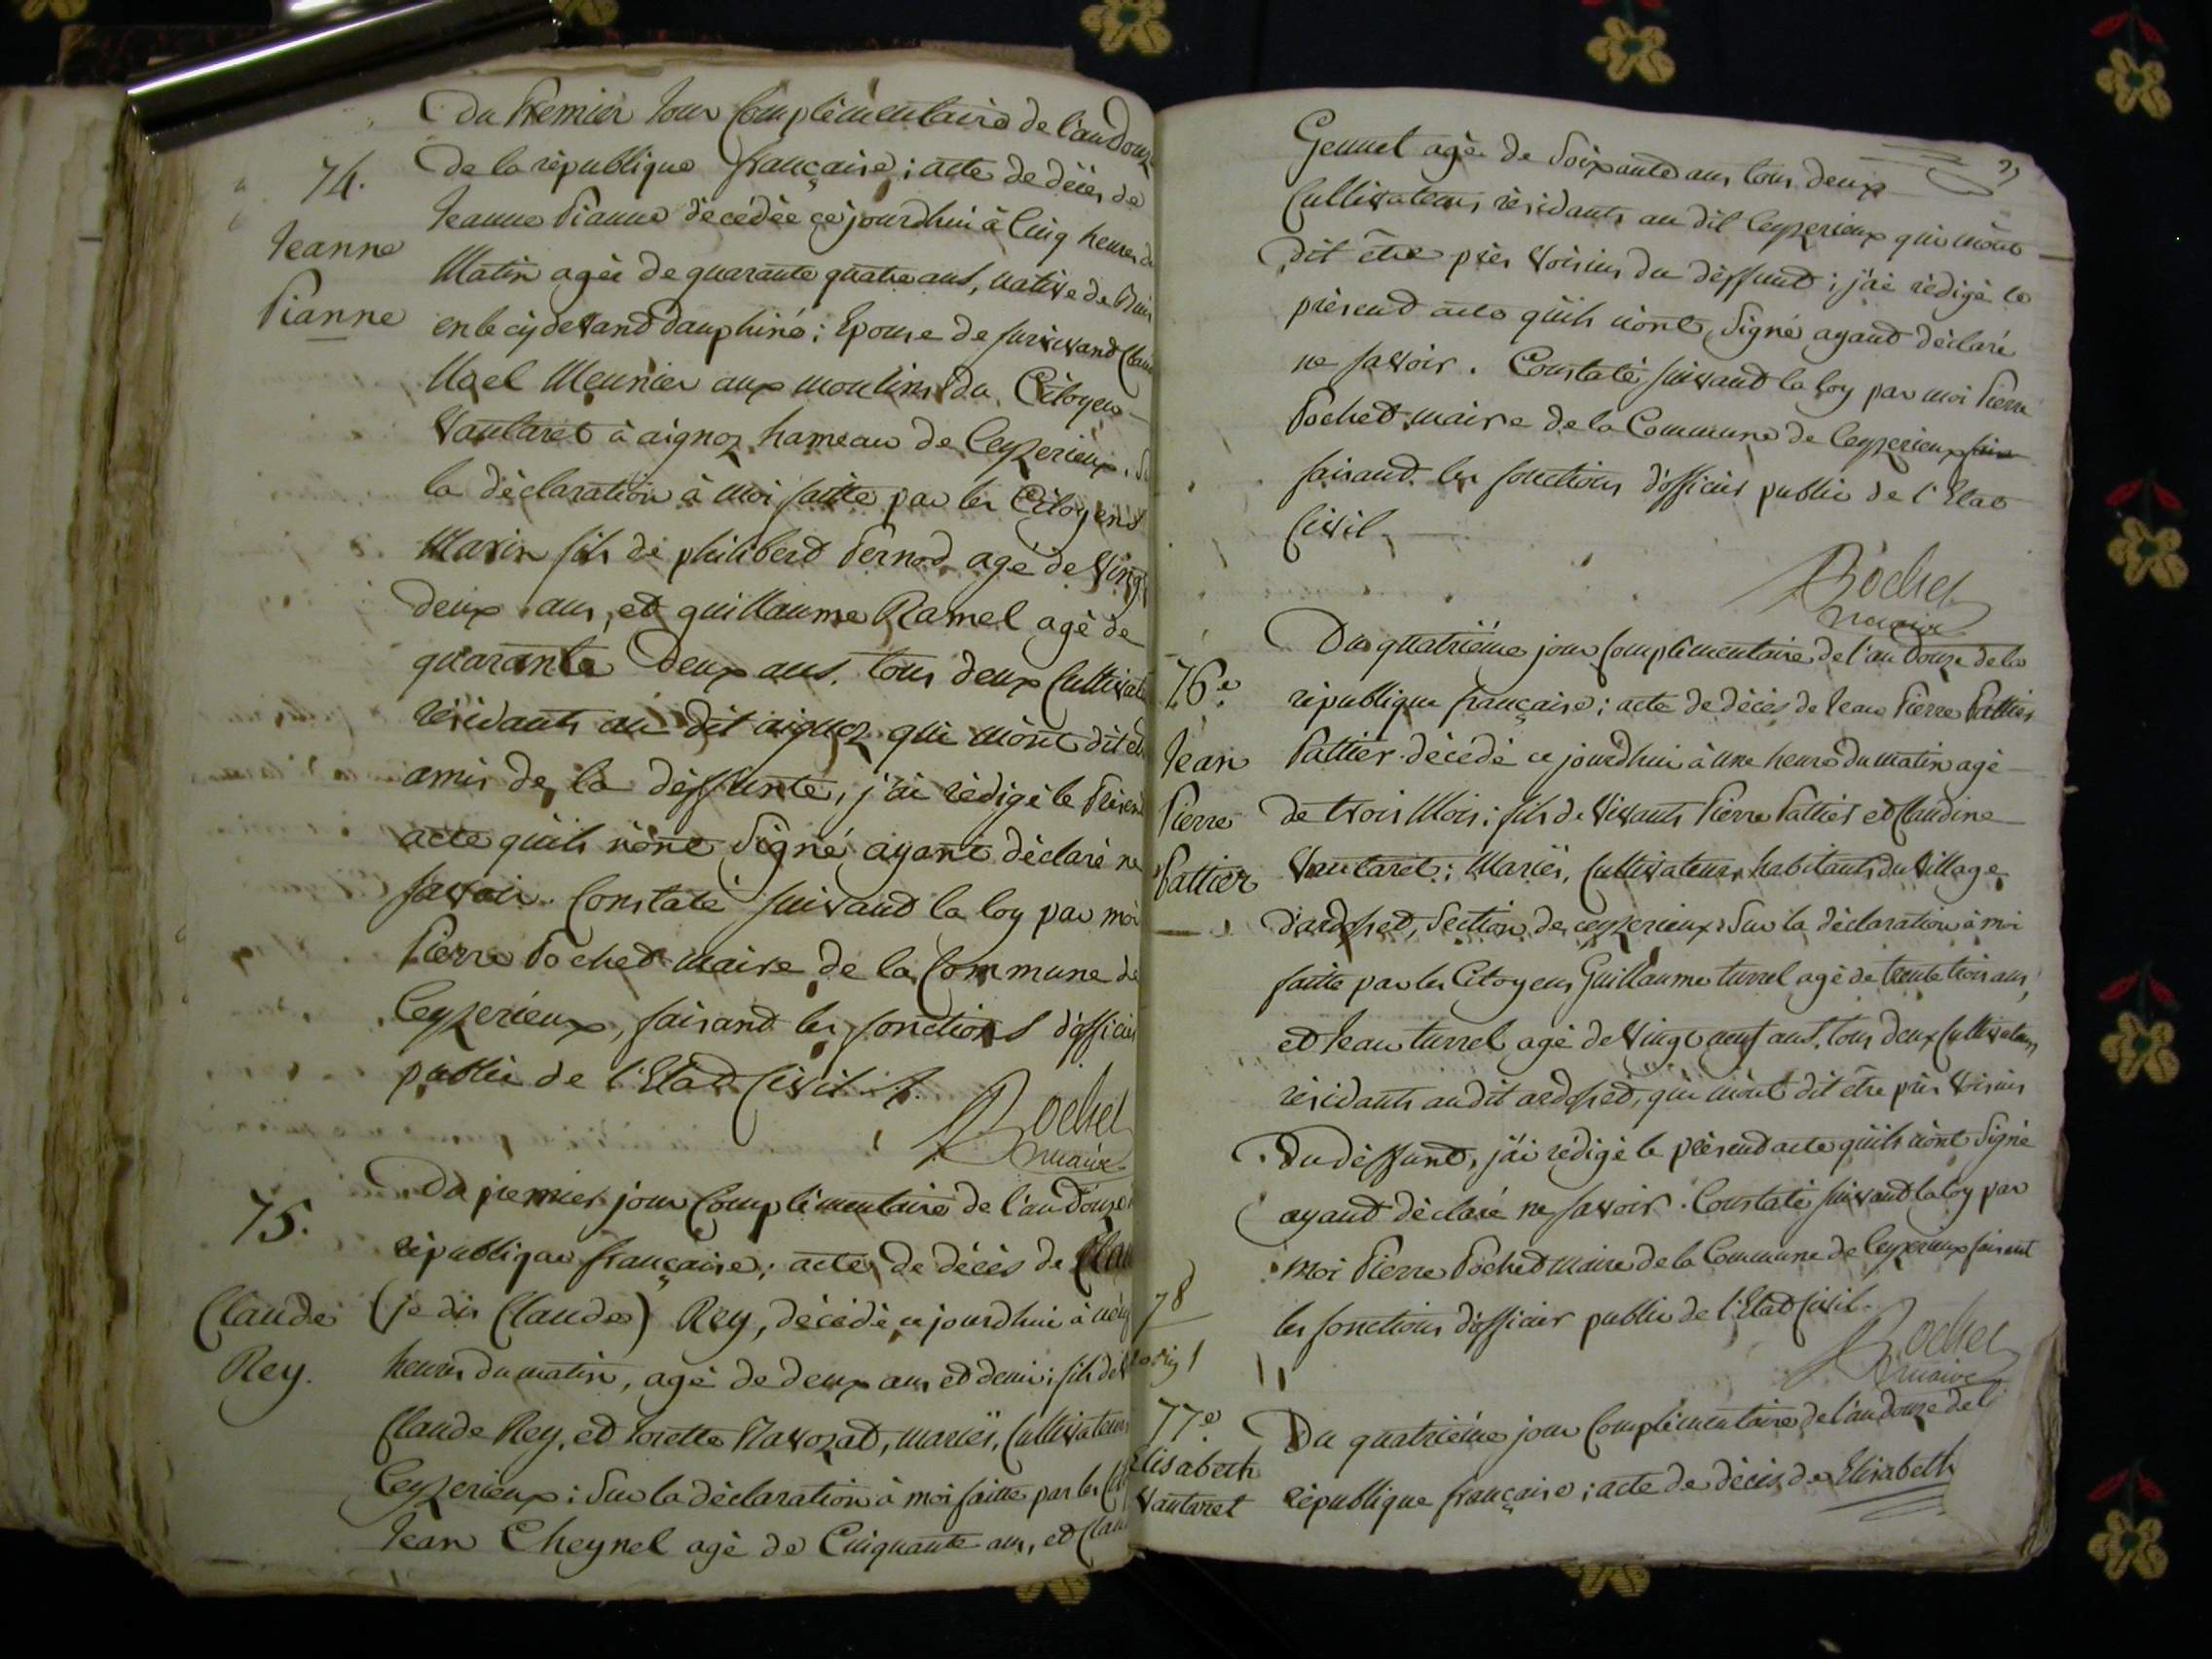 Du Premier Jour Complémentaire de l'an Douz
74.
de la république française; acte de décès de
Jeanne Pianne
Jeanne Pianne décédée ce jourdhui à Cinq heures du
Matin agée de quarante quatre ans, native de
en le cy devand dauphiné; Epouse de survivand
Noel Meunier aux moulins du Citoyen
Vautaret à aignoz hameau de Ceyzerieux.
la déclaration à moi faitte par les Citoyens
Marin fils de philiberd Pernod agé de Vingt
deux ans, et guillaume Ramel agé de
quarante Deux ans. tous deux Cultivat
résidants au dit aignoz qui m'ont dit et
amis de la deffunte, j'ai rédigé le Présend
acte qu'ils n'ont Signé ayant déclaré ne
savoir. Constaté suivand la loy par moi
Pierre Pochet maire de la Commune de
Ceyzerieux, faisand les fonctions d'officier
public de l'Etat Civil.
Pochet
maire
75.
Claude Rey.
Du premier jour Complémentaire de l'an douze
république française; acte de décès de Clau
(je dis Claude) Rey, décédé ce jourdhui à neuf
heures du matin, agé de deux ans et demi; fils de V
Claude Rey, et Josette Ravozat, mariés, Cultivateurs
Ceyzerieux; Sur la déclaration à moi faitte par les Cit
Jean Cheynel agé de Cinquante ans, et Clau
Gennet agé de Soixante ans tous deux
Cultivateurs résidants au dit Ceyzerieux qui m'ont
dit être près Voisins du deffunt; j'ai rédigé le
présend acte qu'ils n'ont Signé ayand déclaré
ne savoir. Constaté suivand la loy par moi Pierre
Pochet maire de la Commune de Ceyzerieux
faisand les fonctions d'officier public de l'Etat
Civil.
Pochet
maire
76.e
Jean
Pierre
Pattier
Du quatrième jour Complémentaire de l'an Douze de la
république française; acte de décès de Jean Pierre Pattier
Pattier décédé ce jourdhui à une heure du matin agé
de trois Mois; fils de Vivants Pierre Pattier et Claudine
Vautaret; Mariés, Cultivateurs habitants du Village
d'ardosset, Section de ceyzerieux: Sur la déclaration à moi
faitte par les Citoyens Guillaume turrel agé de trente trois ans,
et Jean turrel agé de Vingt neuf ans, tous deux Cultivateurs
résidants audit ardosset, qui m'ont dit être près Voisins
du deffunt, j'ai rédigé le présend acte qu'ils n'ont Signé
ayand déclaré ne savoir. Constaté suivand la loy par
moi Pierre Pochet maire de la Commune de Ceyzerieux faisant
les fonctions d'officier public de l'Etat Civil.
Pochet
maire
78
77.e
Elisabeth
Vautaret
Du quatrième jour Complémentaire de l'an douze de l
république française; acte de décès de Elisabeth